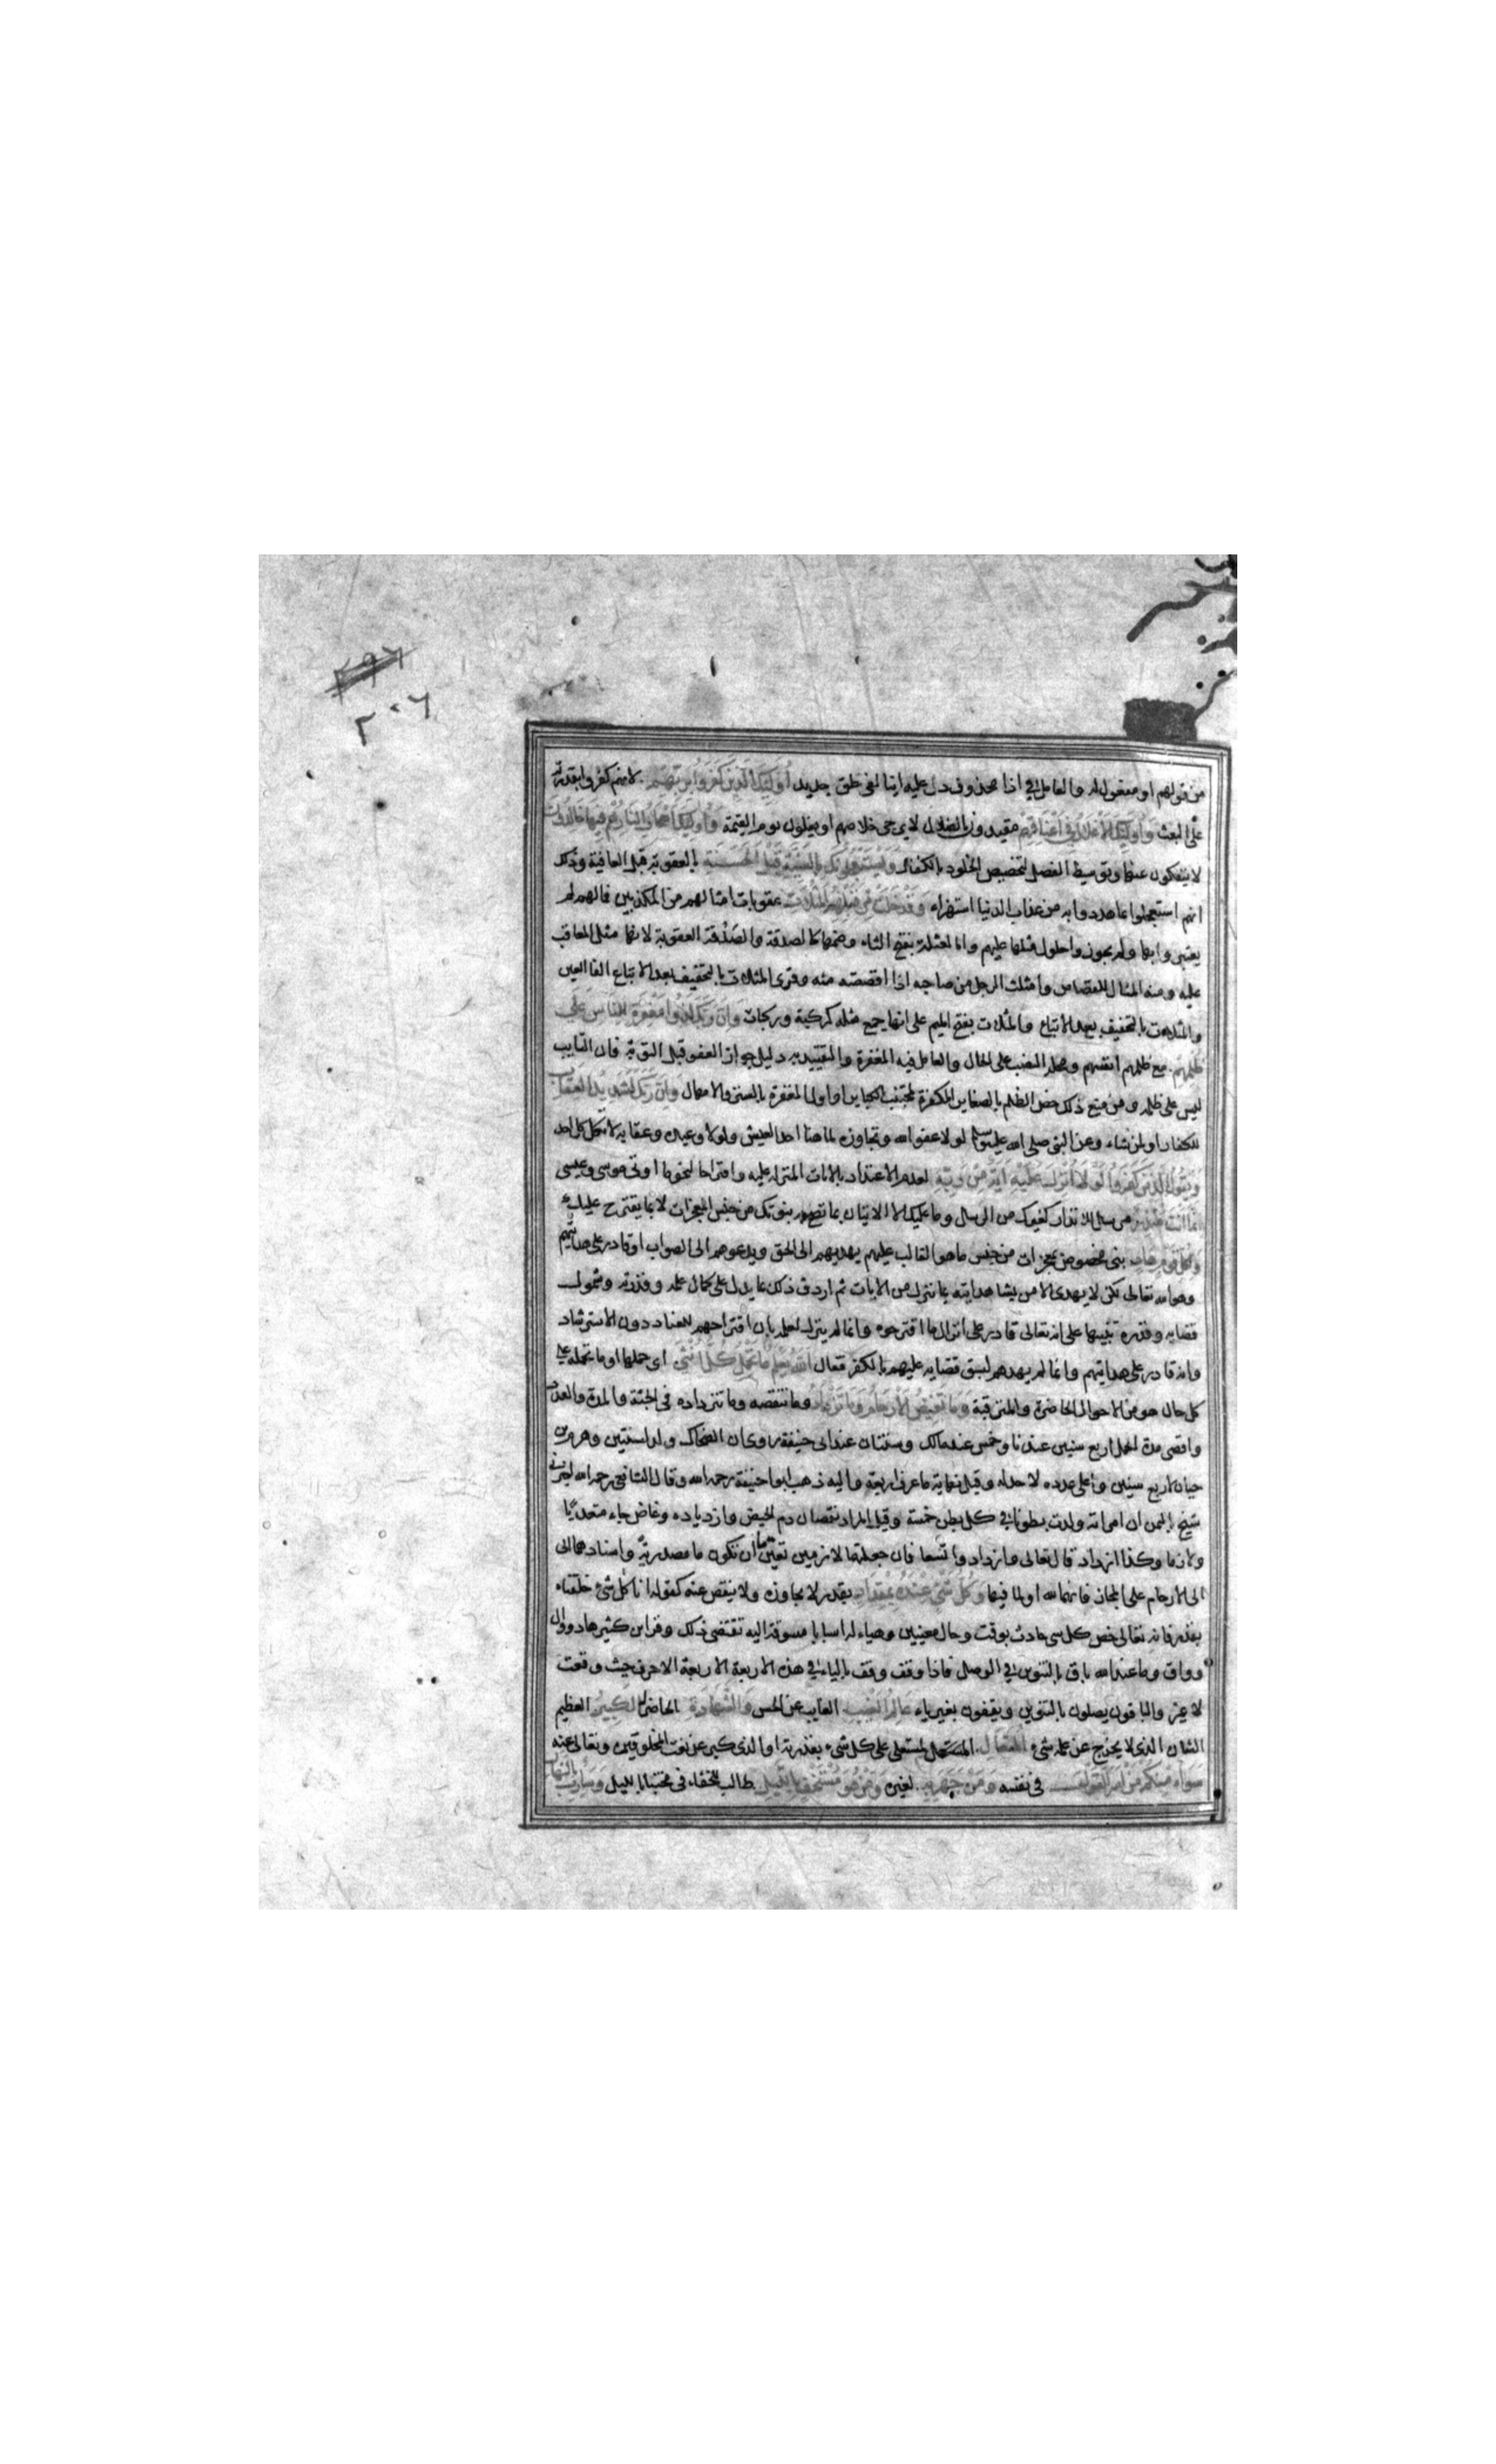 ٢٩٦
٣٠٦
من قولهم او مفعول له والعامل في اذا محذوف دل عليه ائنا لفى خلق جديد أُولَئِكَ الَّذِينَ كَفَرُوا بِرَبِّهِم لانهم كفروا بقدرته
على البعث وَأُولَئِكَ الْأَغْلَالُ فِي أَعْنَاقِهِم مقيدون بالضلال لا يرجى خلاصهم او يغلون يوم القيمة وَأُولَئِكَ أَصْحَابُ النَّارِ هُمْ فِيهَا خَالِدُونَ
لا ينفكون عنها وتوسيط الفصل لتخصيص الخلود بالكفار وَيَسْتَعْجِلُونَكَ بِالسَّيِّئَةِ قَبْلَ الْحَسَنَةِ بالعقوبة قبل العافية وذلك
انهم استعجلوا ما هددوا به من عذاب الدنيا استهزاء وَقَدْ خَلَتْ مِن قَبْلِهِمُ الْمَثُلَاتُ عقوبات امثالهم من المكذبين فما لهم لم
يعتبروا بها ولم يجوزوا حلول مثلها عليهم والمثلة بفتح الثاء وضمها كالصدقة والصدقة العقوبة لانها مثل المعاقب
عليه ومنه المثال للقصاص وامثلت الرجل من صاحبه اذا اقصصته منه وقرى المثلات بالتخفيف بعد الاتباع الفا العين
والمثلات بالتخفيف بعد الاتباع والمثلات بفتح الميم على انها جمع مثله كركبة وركبات وَإِنَّ رَبَّكَ لَذُو مَغْفِرَةٍ لِلنَّاسِ عَلَى
ظُلْمِهِم مع ظلمهم انفسهم ومحله النصب على الحال والعامل فيه المغفرة والتقييد به دليل جواز العفو قبل التوبة فان التايب
ليس على ظلمه ومن منع ذلك خص الظلم بالصغاير المكفرة لمجتنب الكباير او اول المغفرة بالستر والامهال وَإِنَّ رَبَّكَ لَشَدِيدُ الْعِقَابِ
للكفار او لمن شاء وعن النبي صلى الله عليه وسلم لولا عفو الله وتجاوزه لما هنا احد العيش ولولا وعيده وعقابه لاتكل كل احد
وَيَقُولُ الَّذِينَ كَفَرُوا لَوْلَا أُنزِلَ عَلَيْهِ آيَةٌ مِنْ رَبِّهِ لعدم الاعتداد بالايات المنزلة عليه واقتراحا لنحو ما اوتى موسى وعيسى
إِنَّمَا أَنْتَ مُنْذِرٌ مرسل للانذار كغيرك من الرسل وما عليك الا الاتيان بما تصح به نبوتك من جنس المعجزات لا بما يقترح عليك
وَلِكُلِّ قَوْمٍ هَادٍ نبى مخصوص بمعجزات من جنس ما هو الغالب عليهم يهديهم الى الحق ويدعوهم الى الصواب او قادر على هدايتهم
وهو الله تعالى لكن لا يهدى الا من يشا هدايته بما ينزل من الايات ثم اردف ذلك بما يدل على كمال علمه وقدرته وشمول
قضايه وقدره تنبيها على انه تعالى قادر على انزال ما اقترحوه وانما لم ينزل لعلمه بان اقتراحهم للعناد دون الاسترشاد
وانه قادر على هدايتهم وانما لم يهدهم لسبق قضايه عليهم بالكفر فقال اللَّهُ يَعْلَمُ مَا تَحْمِلُ كُلُّ أُنْثَى اى حملها او ما تحمله على
كل حال هو من الاحوال الحاضرة والمترقبة وَمَا تَغِيضُ الْأَرْحَامُ وَمَا تَزْدَادُ وما تنقصه وما تزداده فى الجثة والمدة والعدد
واقصى مدة الحمل اربع سنين عندنا وخمس عند مالك وسنتان عند ابى حنيفة روى ان الضحاك ولد لسنتين وهرم بن
حيان لاربع سنين واعلى عدده لا حد له وقيل نهاية ما عرف اربعة واليه ذهب ابو حنيفة رحمه الله وقال الشافعى رحمه الله اخبرنى
شيخ باليمن ان امراته ولدت بطونا في كل بطن خمسة وقيل المراد نقصان دم الحيض وازدياده وغاض جاء متعديا
ولازما وكذا ازداد قال تعالى وازدادوا تسعا فان جعلتهما لازمين تعين ما ان تكون ما مصدرية واسنادهما الى
الى الارحام على المجاز فانهما لله او لما فيها وَكُلُّ شَيْءٍ عِنْدَهُ بِمِقْدَارٍ بقدر لا يجاوزه ولا ينقص عنه كقوله انا كل شىء خلقناه
بقدر فانه تعالى خص كل شى حادث بوقت وحال معينين وهياء له اسبابا مسوقة اليه تقتضى ذلك وقرا ابن كثير هاد ووال
وواق وما عند الله باق بالتنوين في الوصل فاذا وقف وقف بالياء في هذه الاربعة الاربعة الاحرف حيث وقعت
لا غير والباقون يصلون بالتنوين ويقفون بغير ياء عَالِمُ الْغَيْبِ الغايب عن الحس وَالشَّهَادَةِ الحاضر له الْكَبِيرُ العظيم
الشان الذى لا يخرج عن علمه شىء الْمُتَعَالِ المستعلى على كل شىء بقدرته او الذى كبر عن نعت المخلوقين وتعالى عنه
سَوَاءٌ مِنْكُمْ مَنْ أَسَرَّ الْقَوْلَ فى نفسه وَمَنْ جَهَرَ بِهِ لغيره وَمَنْ هُوَ مُسْتَخْفٍ بِاللَّيْلِ طالب للخفاء فى مختبا بالليل وَسَارِبٌ بِالنَّهَارِ